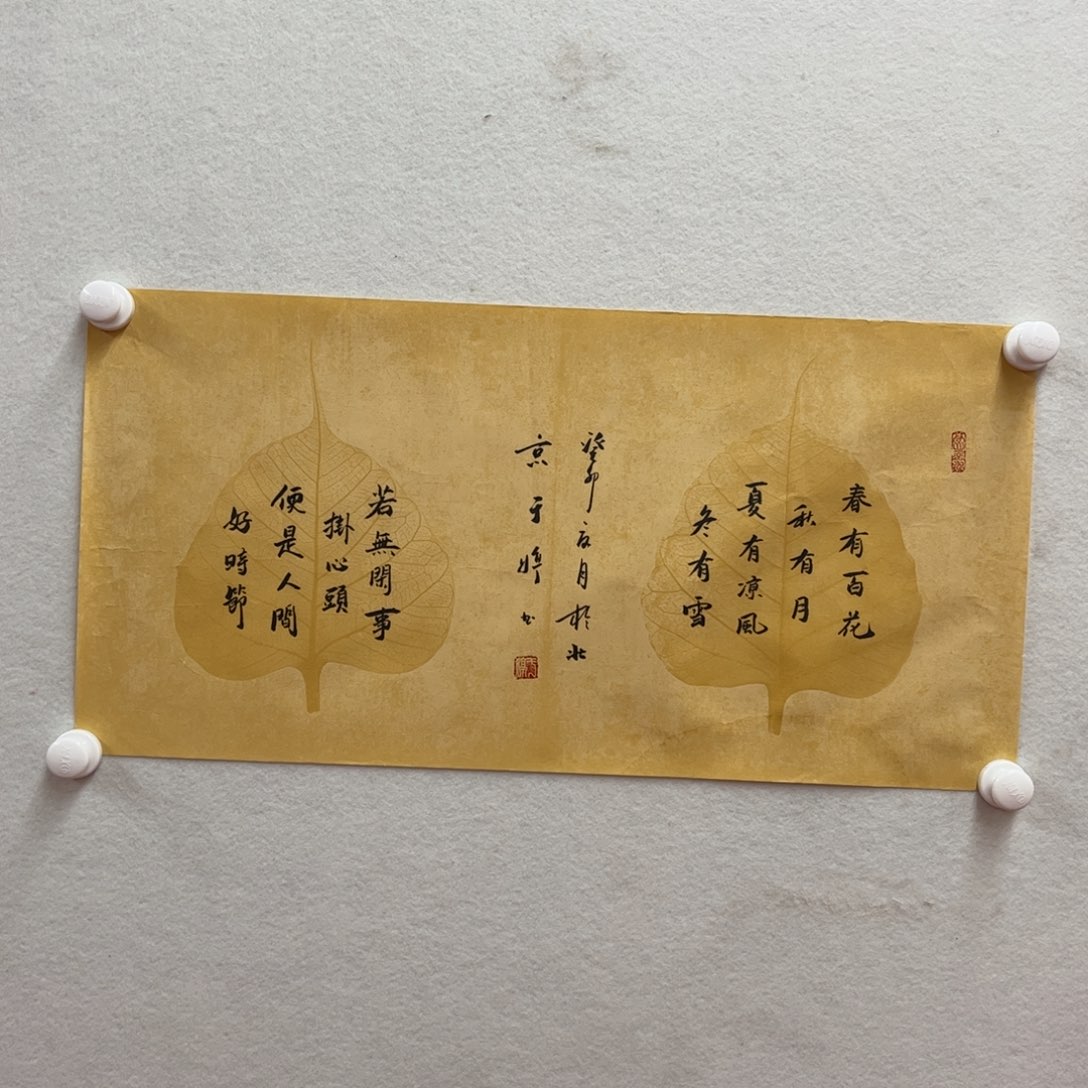 春有百花
秋有月
夏有凉風
冬有雪
癸卯
月於北
京于
书
若無閑事
掛心頭
便是人間
好時節